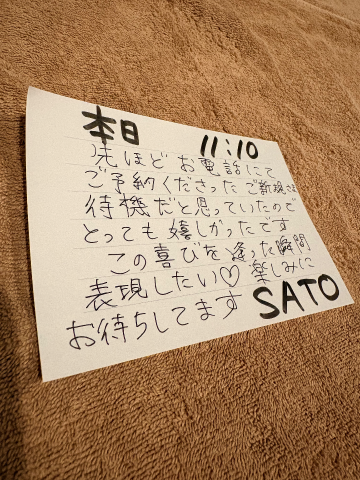 本日 11:10
先ほど お電話にて
ご予約くださった ご新規さま
待機だと思っていたので
とっても嬉しかったです
この喜びを 逢った瞬間
表現したい♡ 楽しみに
お待ちしてます SATO